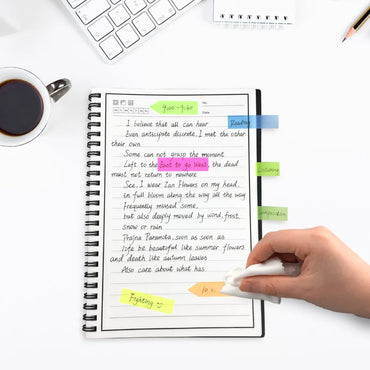 9:00-9:40
No.
Date.
Reading
I believe that all can hear
Even anticipate discrete, I met the other
their own
Some can not grasp the moment
Left to the East to go West, the dead
must not return to nowhere
Listening
See, I wear Ian Flowers on my head,
in full bloom along the way all the way
Frequently missed some,
but also deeply moved by wind, frost,
snow or rain
Prajna Paramita, soon as soon as
life be beautiful like summer flowers
and death like autumn leaves
Also care about what has
Fighting